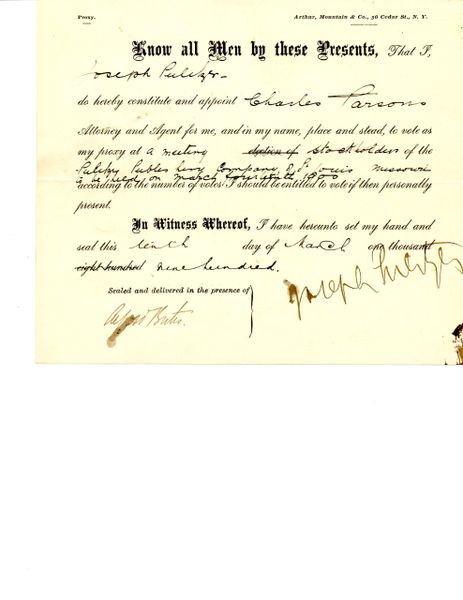 Proxy. Arthur, Mountain & Co., 56 Cedar St., N. Y.
Know all Men by these Presents, That I,
Joseph Pulitzer
do hereby constitute and appoint Charles Parsons
Attorney and Agent for me, and in my name, place and stead, to vote as
my proxy at a meeting election of stockholders of the
Pulitzer Publishing Company, St Louis Missouri
to be held on March 1900
according to the number of votes I should be entitled to vote if then personally
present.
In Witness Whereof, I have hereunto set my hand and
seal this tenth day of March one thousand
eight hundred nine hundred.
Sealed and delivered in the presence of
Joseph Pulitzer
Alfred